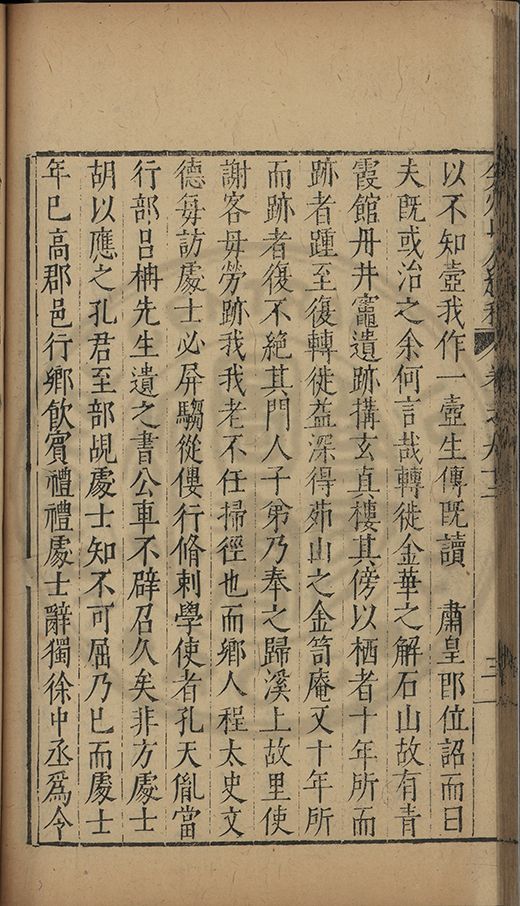 以不知壺我作一壺生傳既讀 肅皇卽位詔而曰
夫既或治之余何言哉轉徙金華之解石山故有青
霞館丹井竈遺跡搆玄真樓其傍以栖者十年所而
跡者踵至復轉徙益深得茆山之金笥庵又十年所
而跡者復不絕其門人子弟乃奉之歸溪上故里使
謝客毋勞跡我我老不任掃徑也而鄉人程太史文
德每訪處士必屏騶從僂行脩刺學使者孔天胤當
行部呂柟先生遺之書公車不辟召久矣非方處士
胡以應之孔君至部覘處士知不可屈乃已而處士
年已高郡邑行鄉飮賓禮禮處士辭獨徐中丞爲令